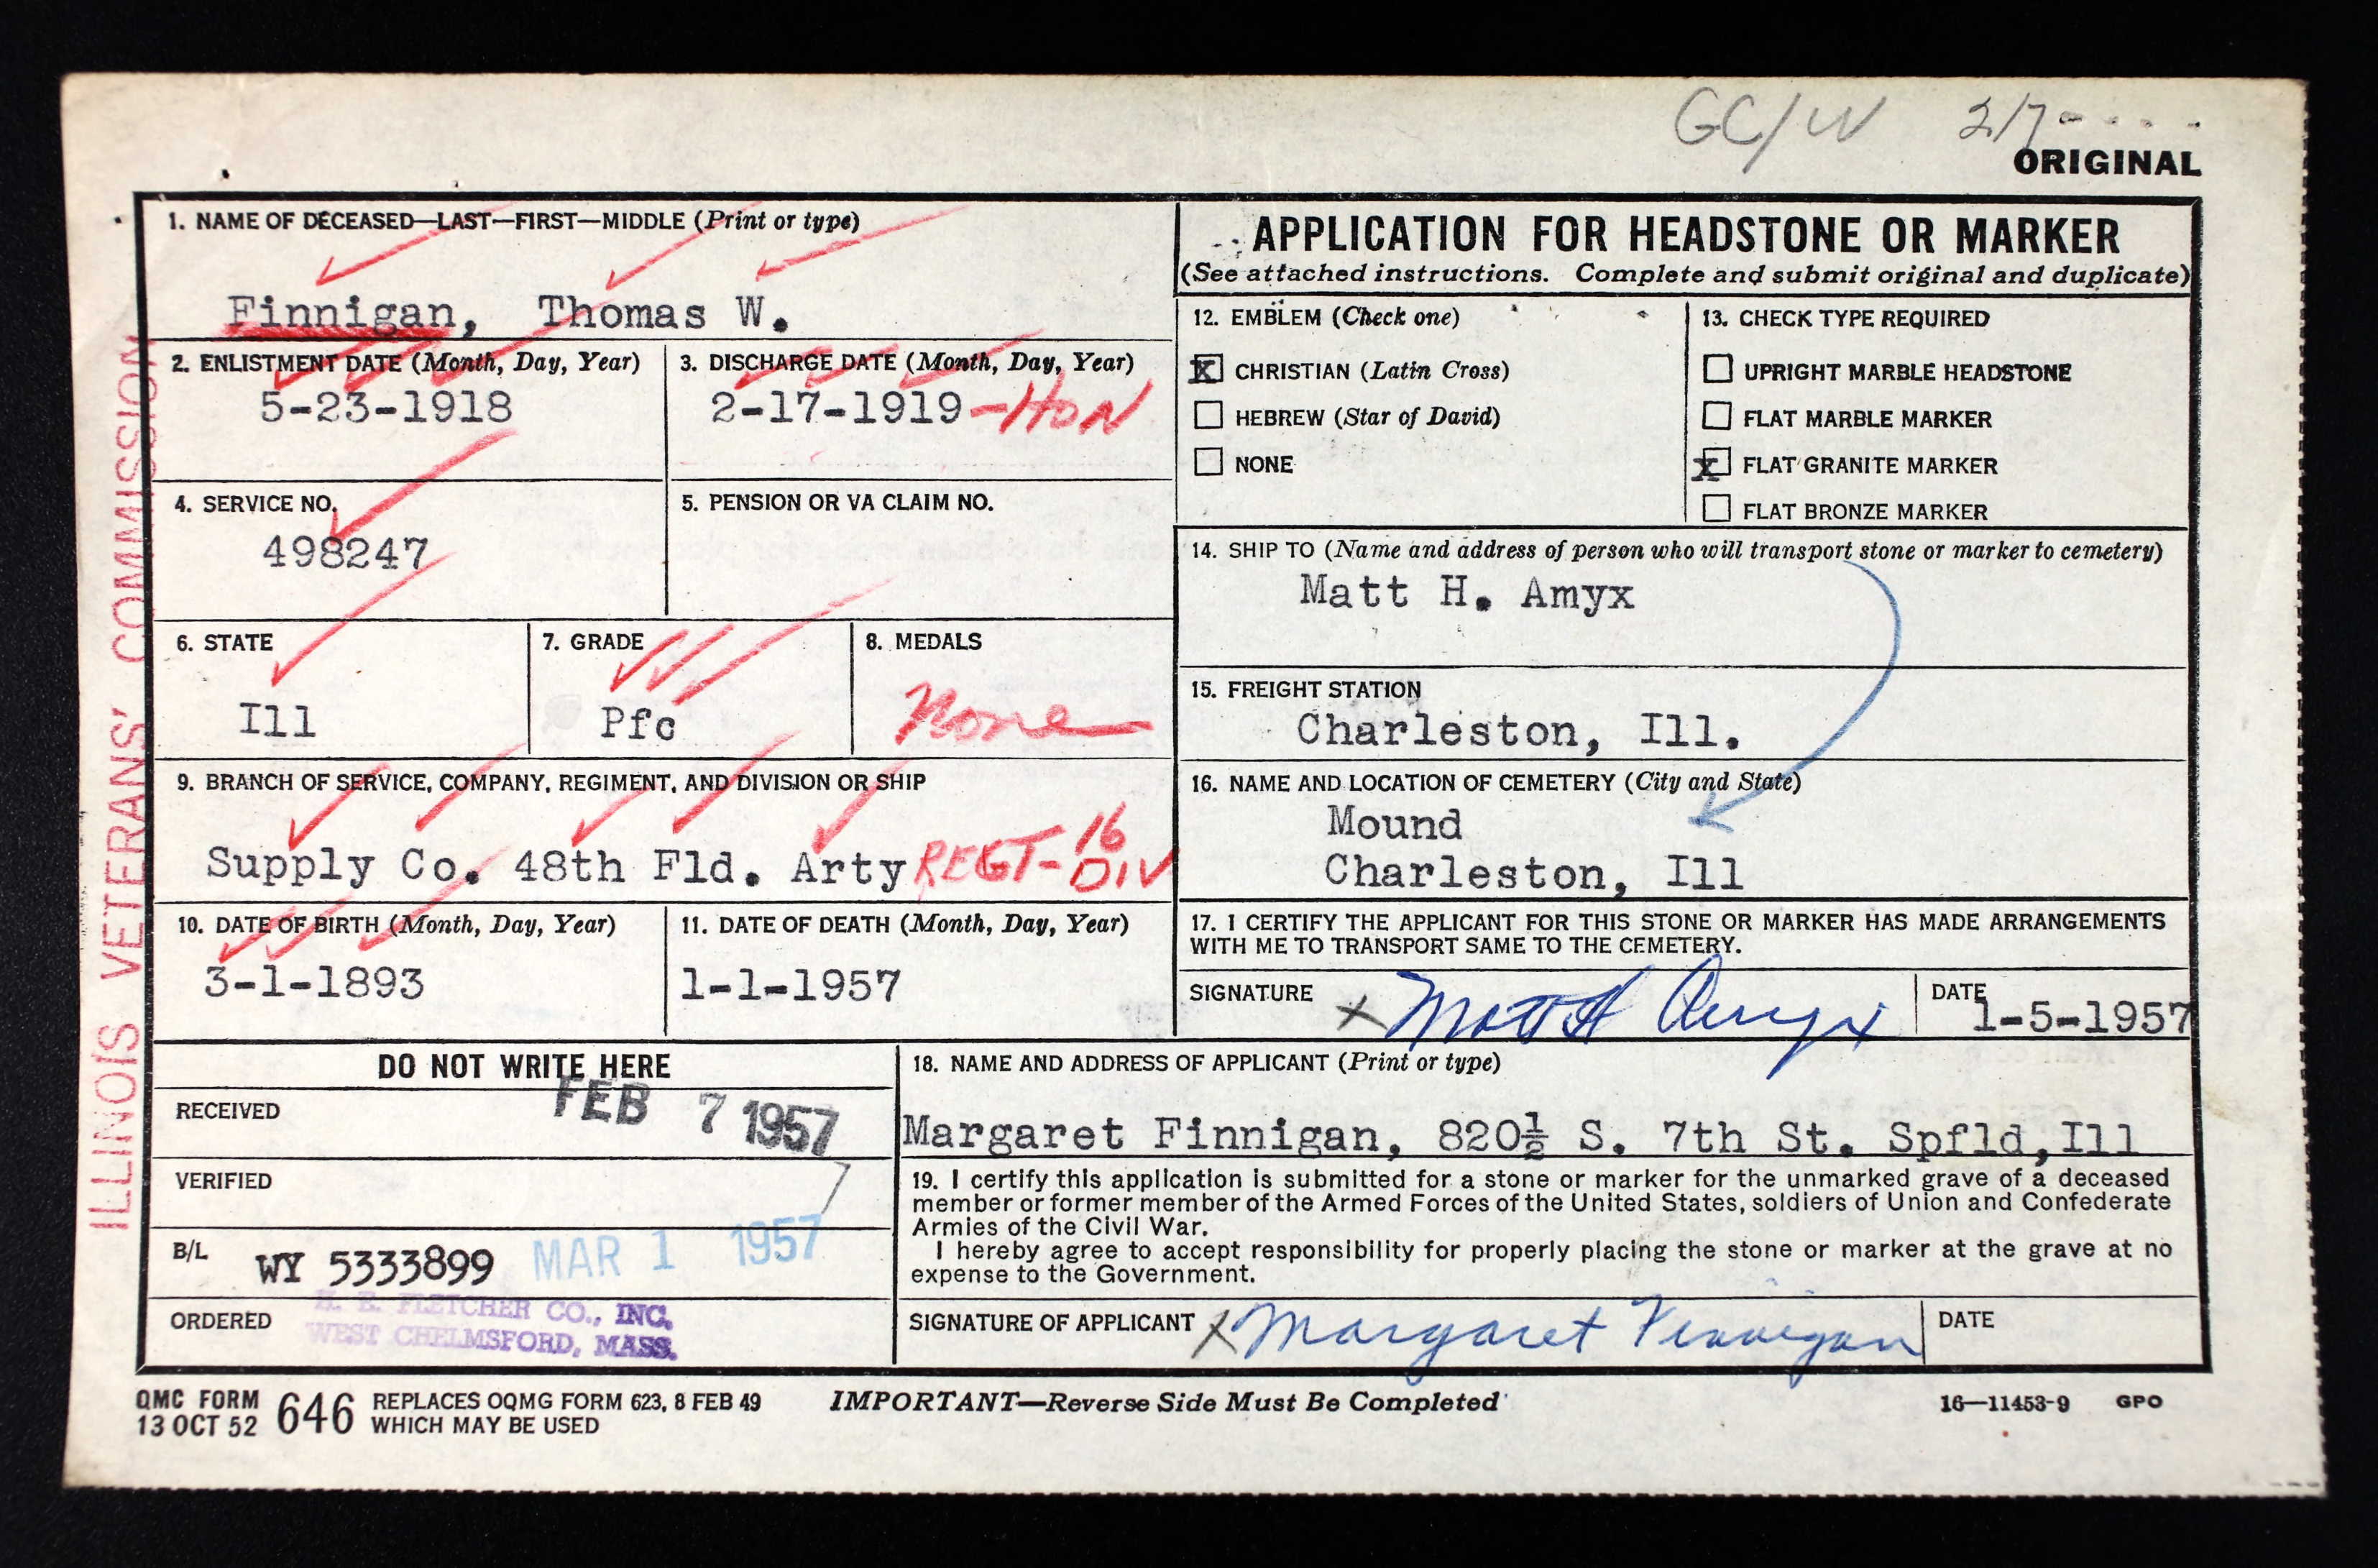 GC/W 2/7
ORIGINAL
1. NAME OF DECEASED—LAST—FIRST—MIDDLE (Print or type)
Finnigan, Thomas W.
2. ENLISTMENT DATE (Month, Day, Year)
5-23-1918
3. DISCHARGE DATE (Month, Day, Year)
2-17-1919 -HON
4. SERVICE NO.
498247
5. PENSION OR VA CLAIM NO.
6. STATE
Ill
7. GRADE
Pfc
8. MEDALS
None
9. BRANCH OF SERVICE, COMPANY, REGIMENT, AND DIVISION OR SHIP
Supply Co. 48th Fld. Arty REGT- 16 DIV
10. DATE OF BIRTH (Month, Day, Year)
3-1-1893
11. DATE OF DEATH (Month, Day, Year)
1-1-1957
APPLICATION FOR HEADSTONE OR MARKER
(See attached instructions. Complete and submit original and duplicate)
12. EMBLEM (Check one)
X CHRISTIAN (Latin Cross)
HEBREW (Star of David)
NONE
13. CHECK TYPE REQUIRED
UPRIGHT MARBLE HEADSTONE
FLAT MARBLE MARKER
X FLAT GRANITE MARKER
FLAT BRONZE MARKER
14. SHIP TO (Name and address of person who will transport stone or marker to cemetery)
Matt H. Amyx
15. FREIGHT STATION
Charleston, Ill.
16. NAME AND LOCATION OF CEMETERY (City and State)
Mound
Charleston, Ill
17. I CERTIFY THE APPLICANT FOR THIS STONE OR MARKER HAS MADE ARRANGEMENTS
WITH ME TO TRANSPORT SAME TO THE CEMETERY.
SIGNATURE X Matt H Amyx
DATE 1-5-1957
DO NOT WRITE HERE
RECEIVED FEB 7 1957
VERIFIED
B/L WY 5333899 MAR 1 1957
ORDERED H. E. FLETCHER CO., INC.
WEST CHELMSFORD, MASS.
18. NAME AND ADDRESS OF APPLICANT (Print or type)
Margaret Finnigan, 820½ S. 7th St. Spfld, Ill
19. I certify this application is submitted for a stone or marker for the unmarked grave of a deceased
member or former member of the Armed Forces of the United States, soldiers of Union and Confederate
Armies of the Civil War.
I hereby agree to accept responsibility for properly placing the stone or marker at the grave at no
expense to the Government.
SIGNATURE OF APPLICANT X Margaret Finnigan
DATE
QMC FORM 646
13 OCT 52
REPLACES OQMG FORM 623, 8 FEB 49
WHICH MAY BE USED
IMPORTANT—Reverse Side Must Be Completed
16—11453-9 GPO
ILLINOIS VETERANS' COMMISSION